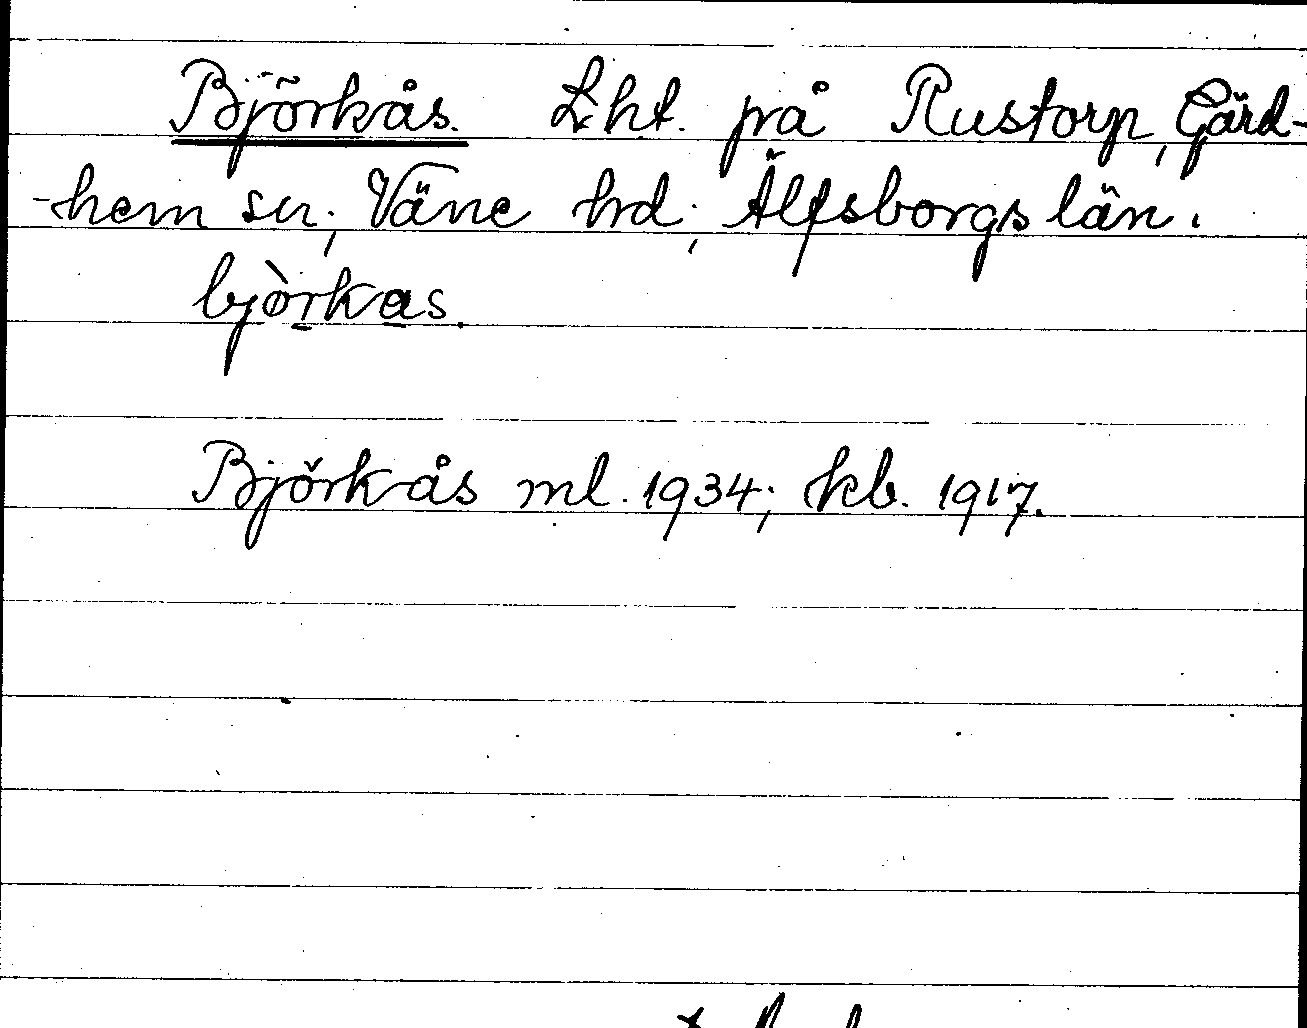 Björkås. Lht. på Rustorp, Gärd-
-hem sn; Väne hd; Älfsborgs län.
bjòrkas.
Björkås ml. 1934; kb. 1917.